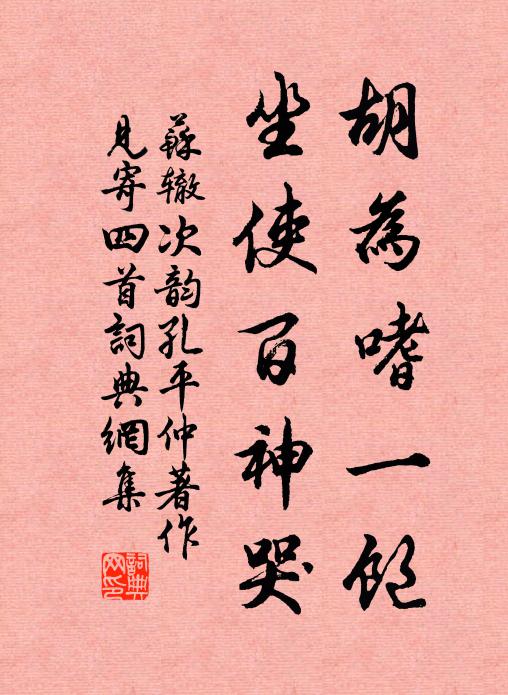 胡為嗜一飽
坐使百神哭
蘇辙次韵孔平仲著作
見寄四首詞典網集
詞典
网印